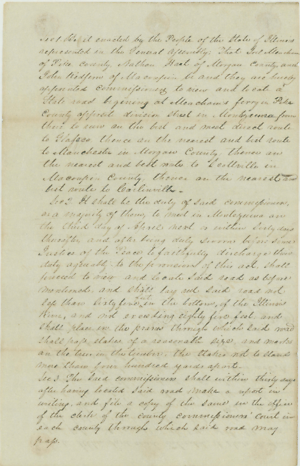 Sec 1 Be it enacted by the People of the State of Illinois
represented in the General Assembly. That
of County Nathan of Morgan County and
John of Macoupin be and they are hereby
appointed Commissioners to view and locate a
State road beginning at ferry in Pike
County opposite street in from
thence to on the best and most direct route
to thence on the nearest and best route
to Manchester in Morgan County thence on
the nearest and best route to in
Macoupin County thence on the nearest and
best route to Carlinville.
Sec 2 It shall be the duty of Said commissioners
or a majority of them, to meet in
on the third day of April next or within sixty days
thereafter and after being duly sworn before some
Justice of the Peace to faithfully discharge their
duty agreeable to the provisions of this act, shall
proceed to view and locate said road as before
mentioned, and shall lay out said road not
less than sixty in the bottom, of the Illinois
River, and not exceeding eighty five feet and
shall place in the prairie through which said road
shall pass, stakes of a reasonable size, and marks
on the trees in the timber. the stakes not to stand
more than four hundred yards apart.
Sec 3 The Said commissioners shall within thirty days
after having located Said road make a report in
writing and file a copy of the same in the office
of the clerk of the county commissioners court in
each county through which said road may
pass.